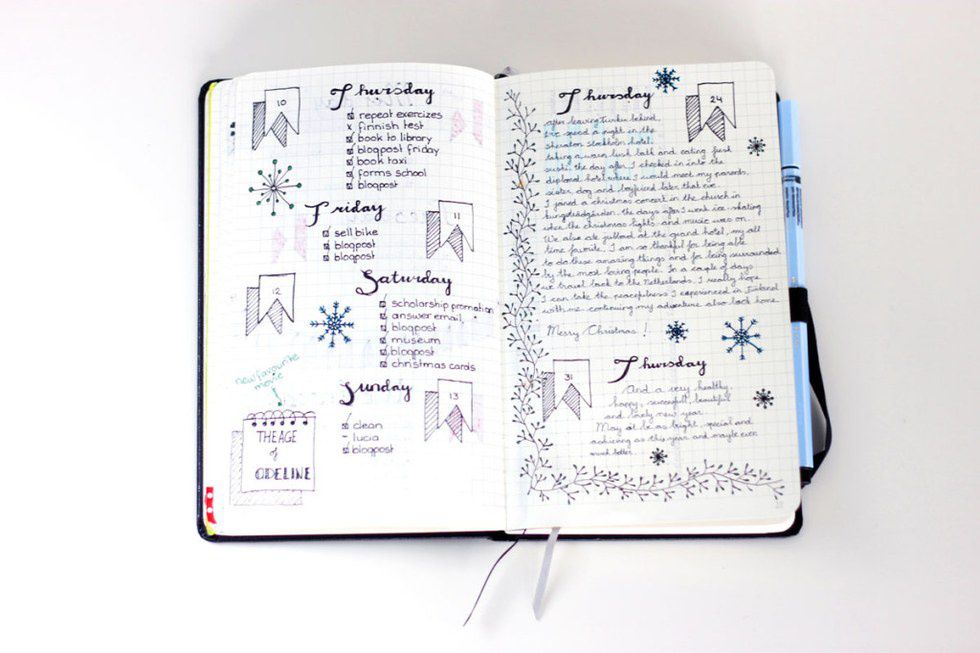 10
Thursday
repeat exercizes
x finnish test
book to library
blogpost friday
book taxi
forms school
blogpost
Friday
11
sell bike
blogpost
blogpost
12
Saturday
scholarship promotion
answer email
blogpost
museum
blogpost
christmas cards
new favourite
movie
Sunday
13
clean
- lucia
blogpost
THE AGE
of
ADELINE
Thursday
24
after leaving Turku behind,
I've spend a night in the
sheraton stockholm hotel.
taking a warm lush bath and eating fresh
sushi. the day after I checked in into the
diplomat hotel where I would meet my parents,
sister, dog and boyfriend later that eve.
I joined a christmas concert in the church in
kungsträdgården. the days after I went ice-skating
when the christmas lights and music was on.
We also ate julbord at the grand hotel, my all
time favorite. I am so thankful for being able
to do these amazing things and for being surrounded
by the most loving people. In a couple of days
we travel back to the Netherlands. I really hope
I can take the peacefulness I experienced in Finland
with me. continuing my adventure also back home.
Merry Christmas!
31
Thursday
And a very healthy,
happy, succesfull, beautiful
and lovely new year.
May it be as bright, special and
achieving as this year and maybe even
much better.